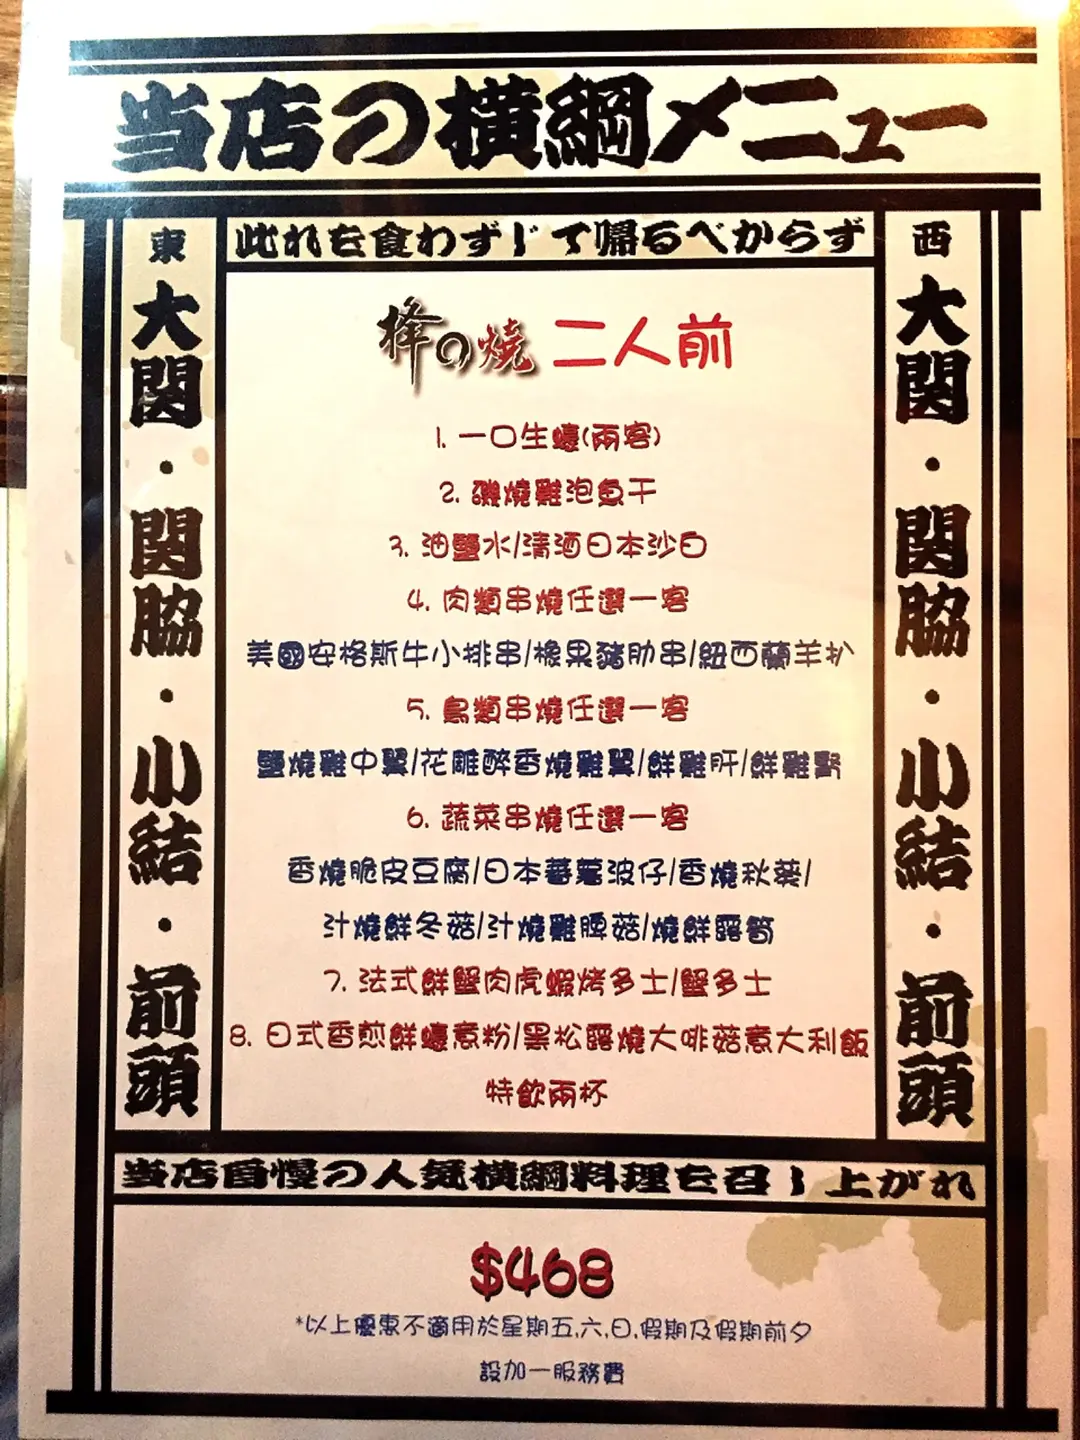 当店の横綱メニュー
東
大関・関脇・小結・前頭
此れを食わずして帰るべからず
西
大関・関脇・小結・前頭
の燒 二人前
1. 一口生蠔(兩客)
2. 磯燒雞泡魚干
3. 油鹽水/清酒日本沙白
4. 肉類串燒任選一客
美國安格斯牛小排串/橡果豬肋串/紐西蘭羊扒
5. 鳥類串燒任選一客
鹽燒雞中翼/花雕醉香燒雞翼/鮮雞肝/鮮雞腎
6. 蔬菜串燒任選一客
香燒脆皮豆腐/日本蕃薯波仔/香燒秋葵/
汁燒鮮冬菇/汁燒雞脾菇/燒鮮露筍
7. 法式鮮蟹肉虎蝦烤多士/蟹多士
8. 日式香煎鮮蠔意粉/黑松露燒大啡菇意大利飯
特飲兩杯
当店自慢の人気横綱料理を召し上がれ
$468
*以上優惠不適用於星期五,六,日,假期及假期前夕
設加一服務費